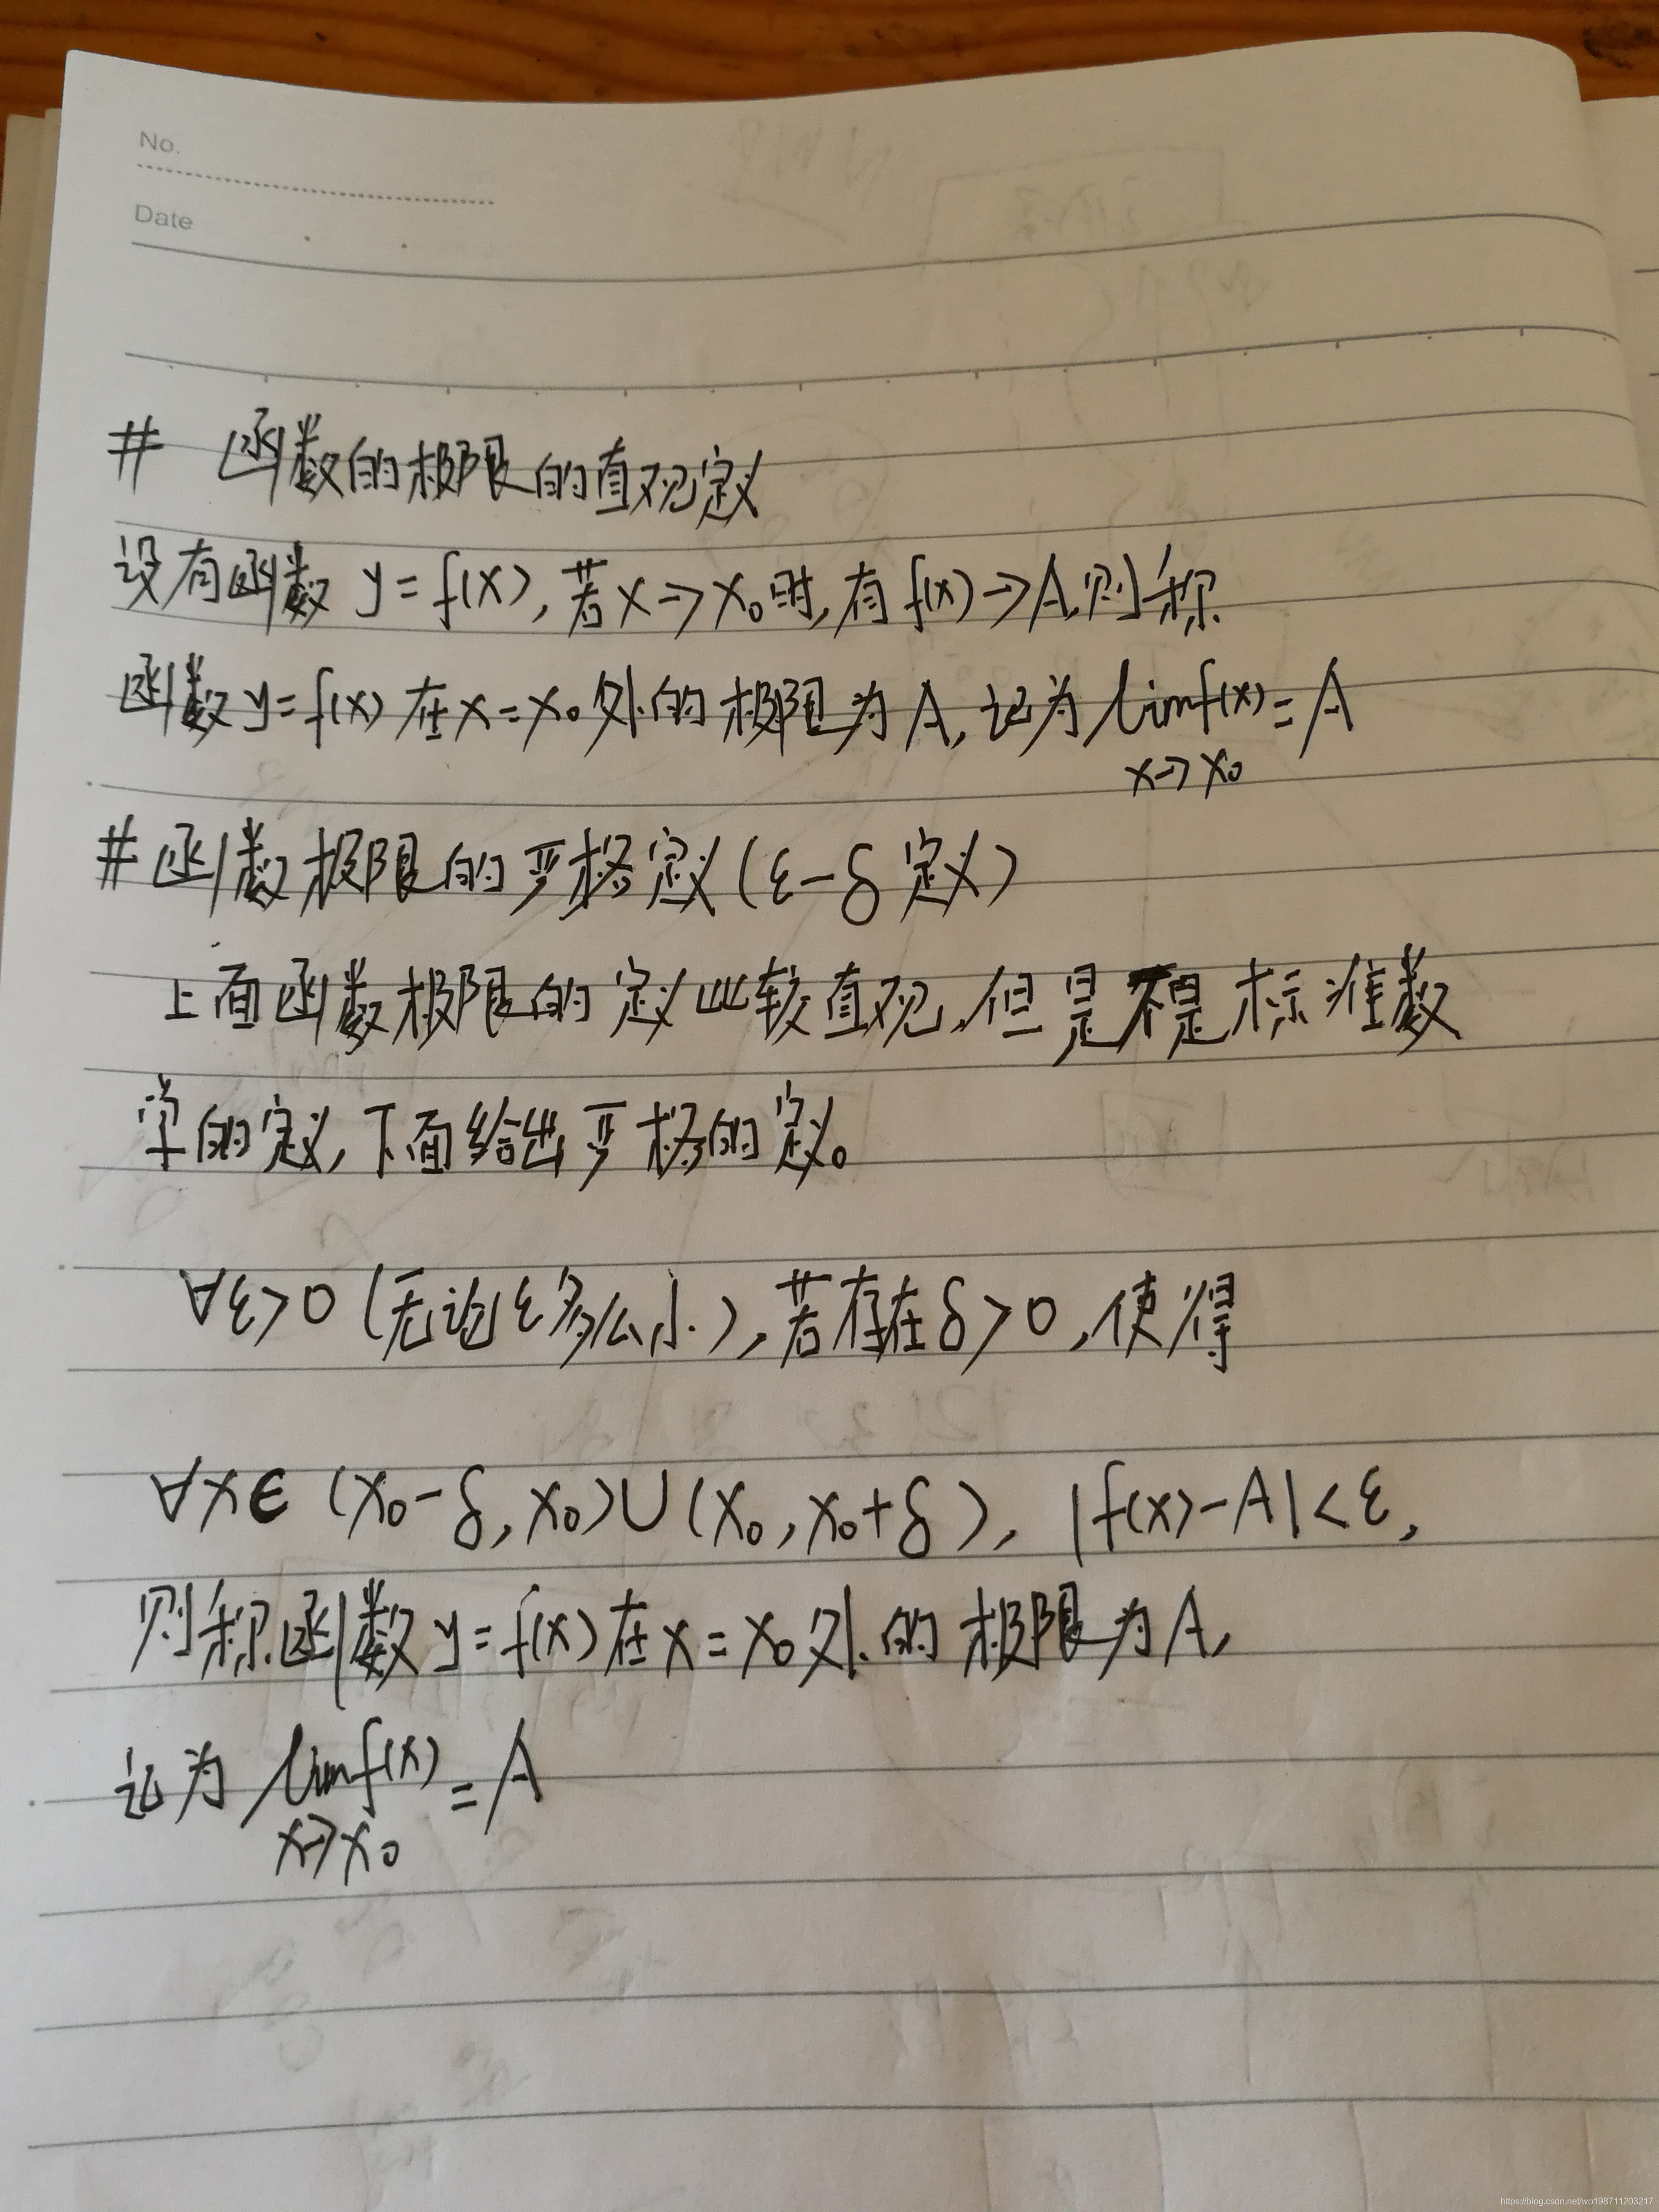 No.
Date
# 函数的极限的直观定义
设有函数 y=f(x),若x→x₀时,有f(x)→A,则称
函数y=f(x)在x=x₀处的极限为A,记为limf(x)=A
x→x₀
#函数极限的严格定义(ε-δ定义)
上面函数极限的定义比较直观,但是不是标准数
学的定义,下面给出严格的定义。
∀ε>0(无论ε多么小),若存在δ>0,使得
∀x∈(x₀-δ,x₀)∪(x₀,x₀+δ),|f(x)-A|<ε,
则称函数y=f(x)在x=x₀处的极限为A,
记为limf(x)=A
x→x₀
https://blog.csdn.net/wo198711203217